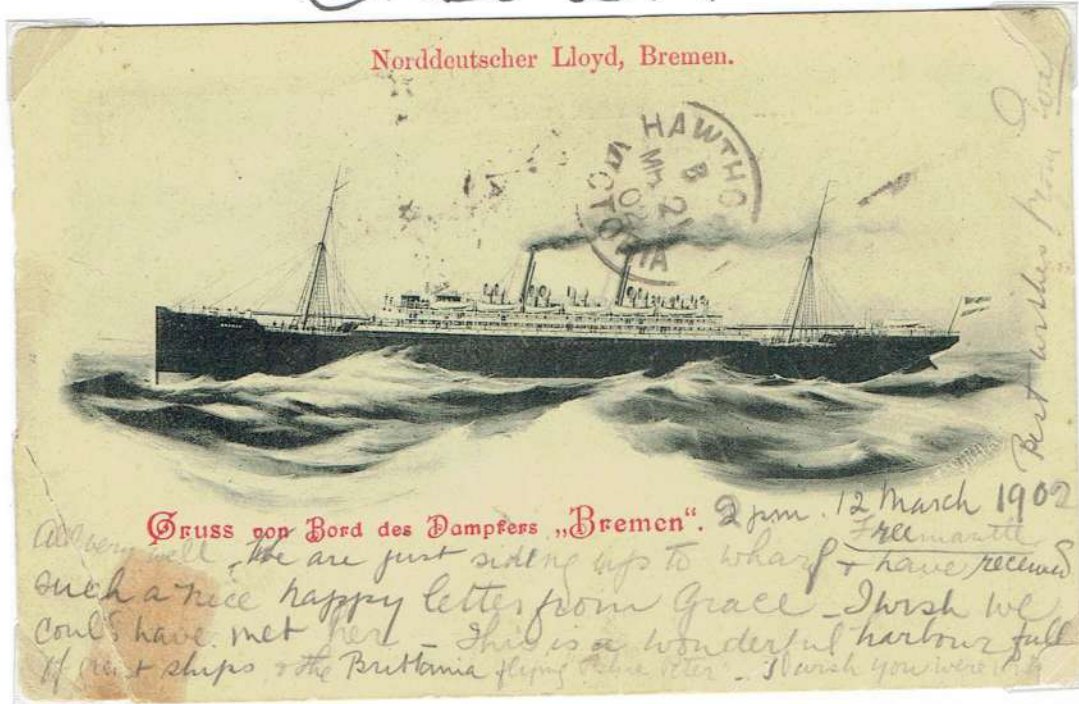 Norddeutscher Lloyd, Bremen.
HAWTHO
B
MR 21
02
VICTORIA
BREMEN
Gruss von Bord des Dampfers „Bremen“.
2 pm. 12 March 1902
Freemantle
All very well. We are just siding up to wharf & have received
such a nice happy letter from Grace – I wish we
could have met her – This is a wonderful harbour full
of great ships & the Brittania flying Blue Peter – I wish you were
Best wishes from